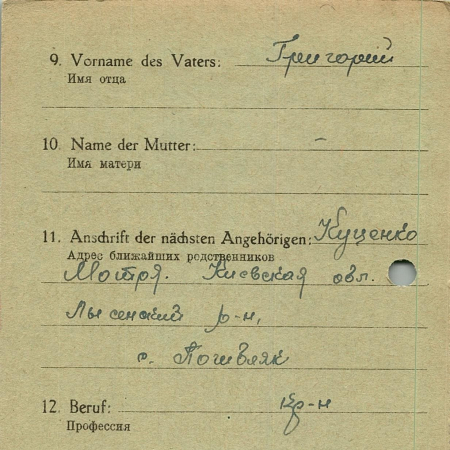 9. Vorname des Vaters: Григорий
Имя отца
10. Name der Mutter: -
Имя матери
11. Anschrift der nächsten Angehörigen: Куценко
Адрес ближайших родственников
Мотря. Киевская обл.
Лысенский р-н,
с. Почивляк
12. Beruf: кр-н
Профессия